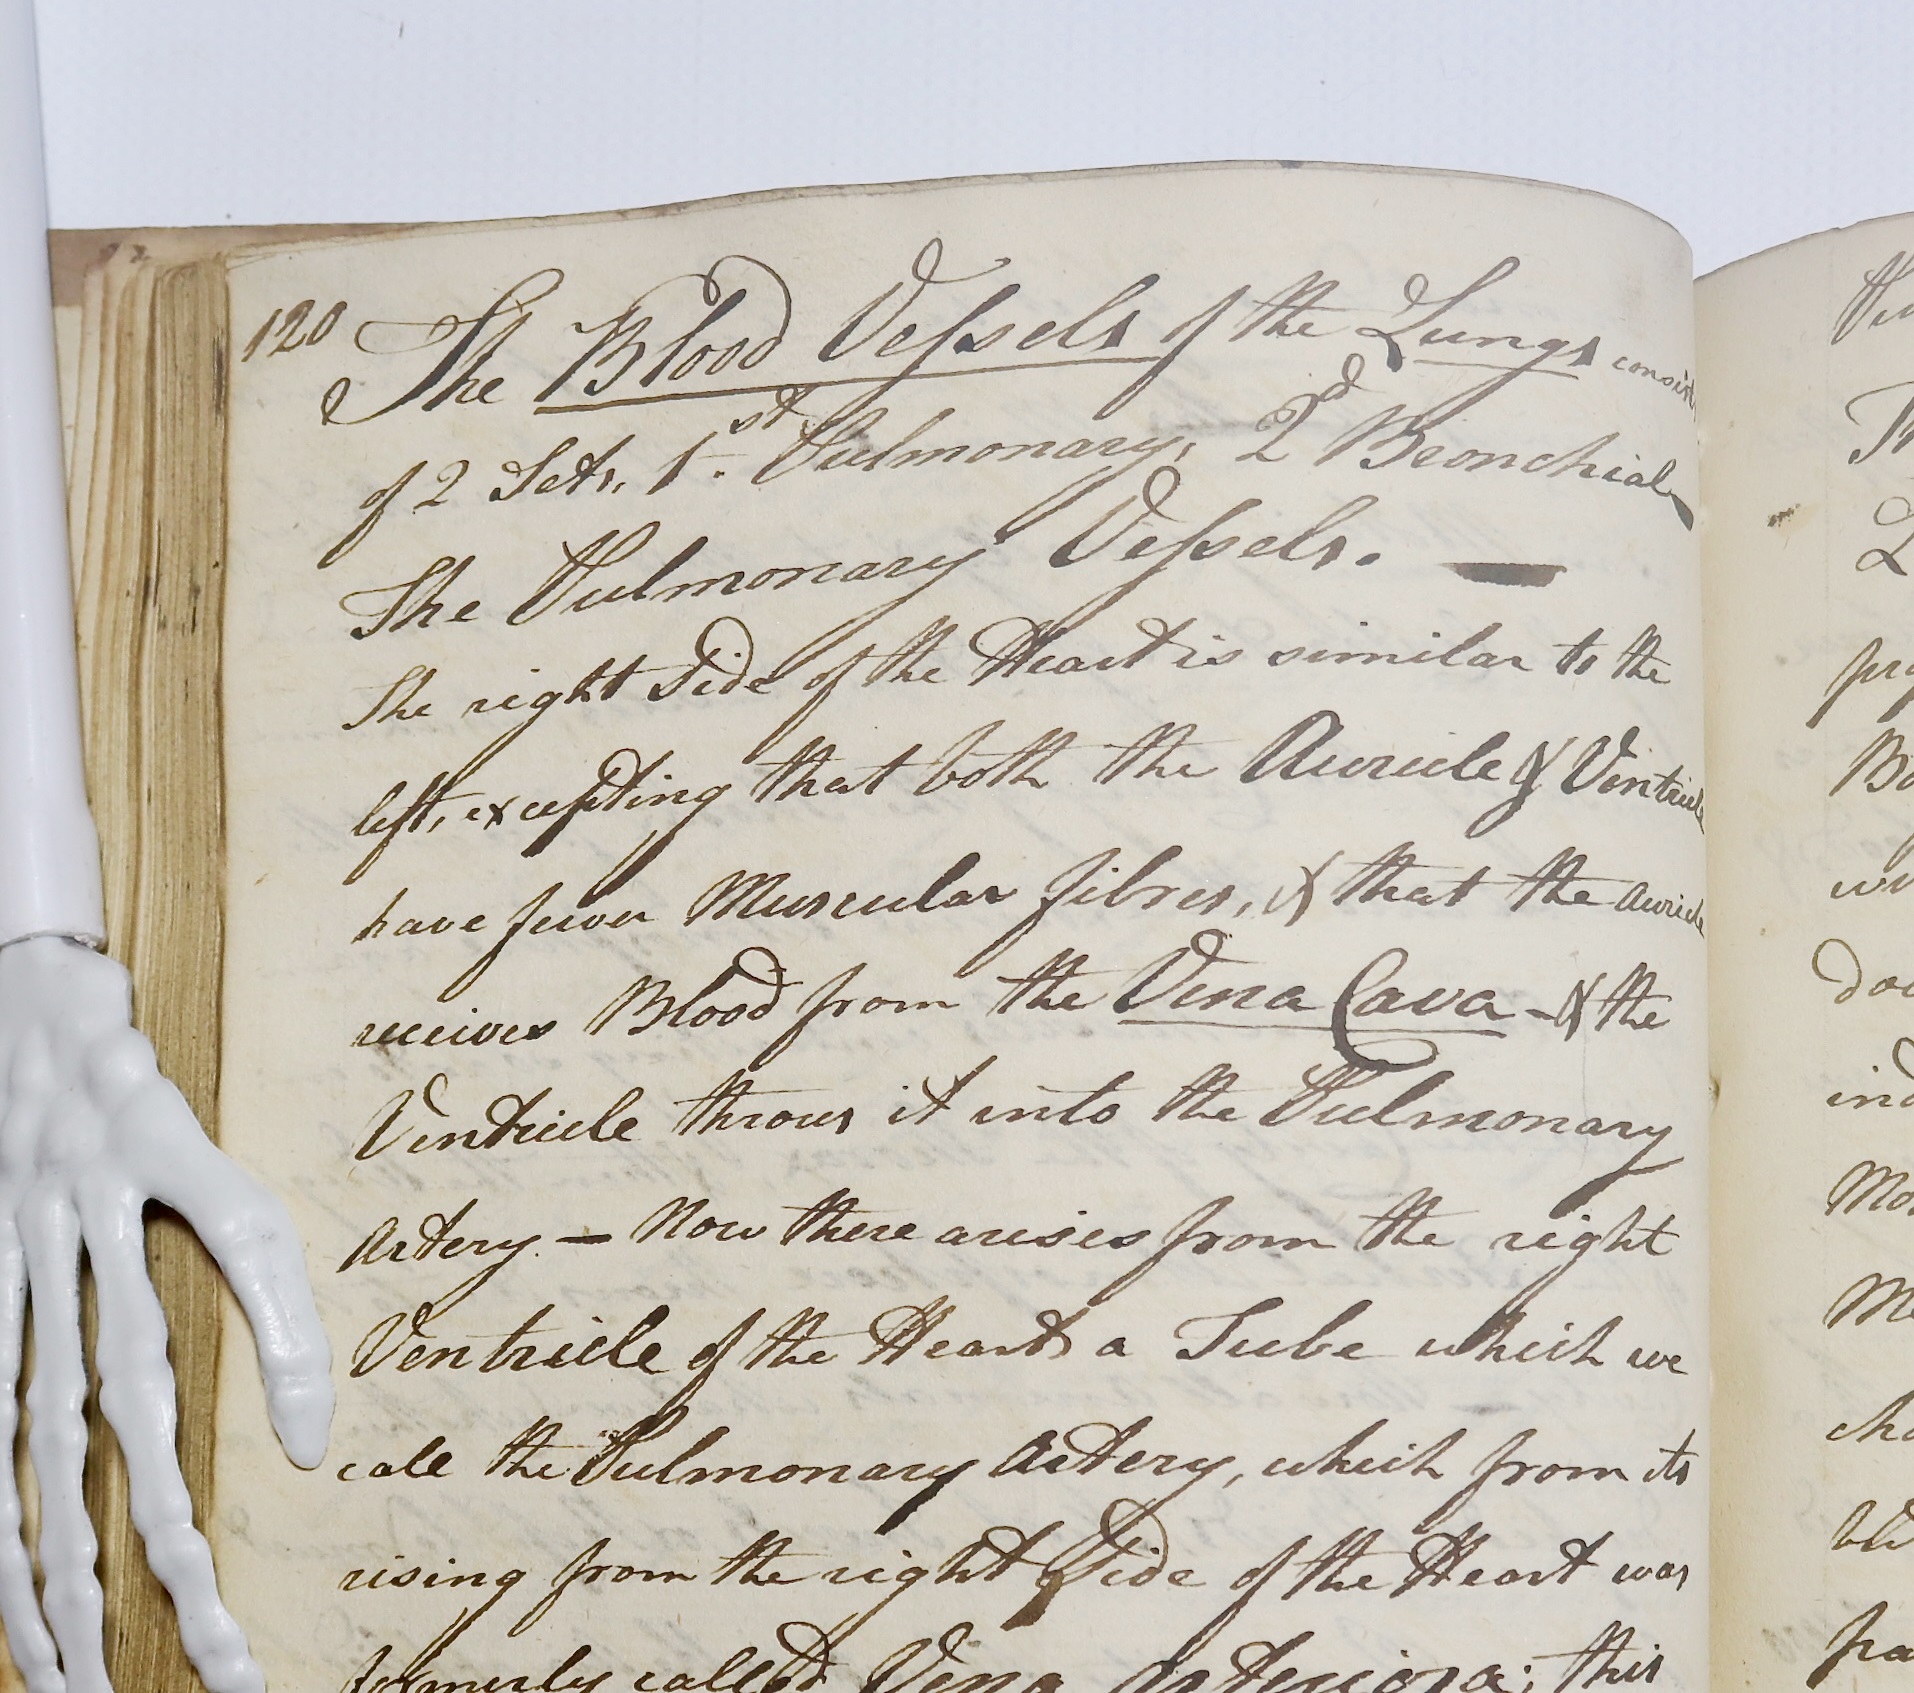 120
The Blood Vessels of the Lungs consist
of 2 Sets, 1st. Pulmonary, 2d Bronchial
The Pulmonary Vessels. —
The right Side of the Heart is similar to the
left, excepting that both the Auricle & Ventricle
have fewer Muscular fibres, & that the auricle
receives Blood from the Vena Cava - & the
Ventricle throws it into the Pulmonary
Artery. — Now there arises from the right
Ventricle of the Heart a Tube which we
call the Pulmonary Artery, which from its
rising from the right Side of the Heart was
formerly called Vena Arteriosa; this